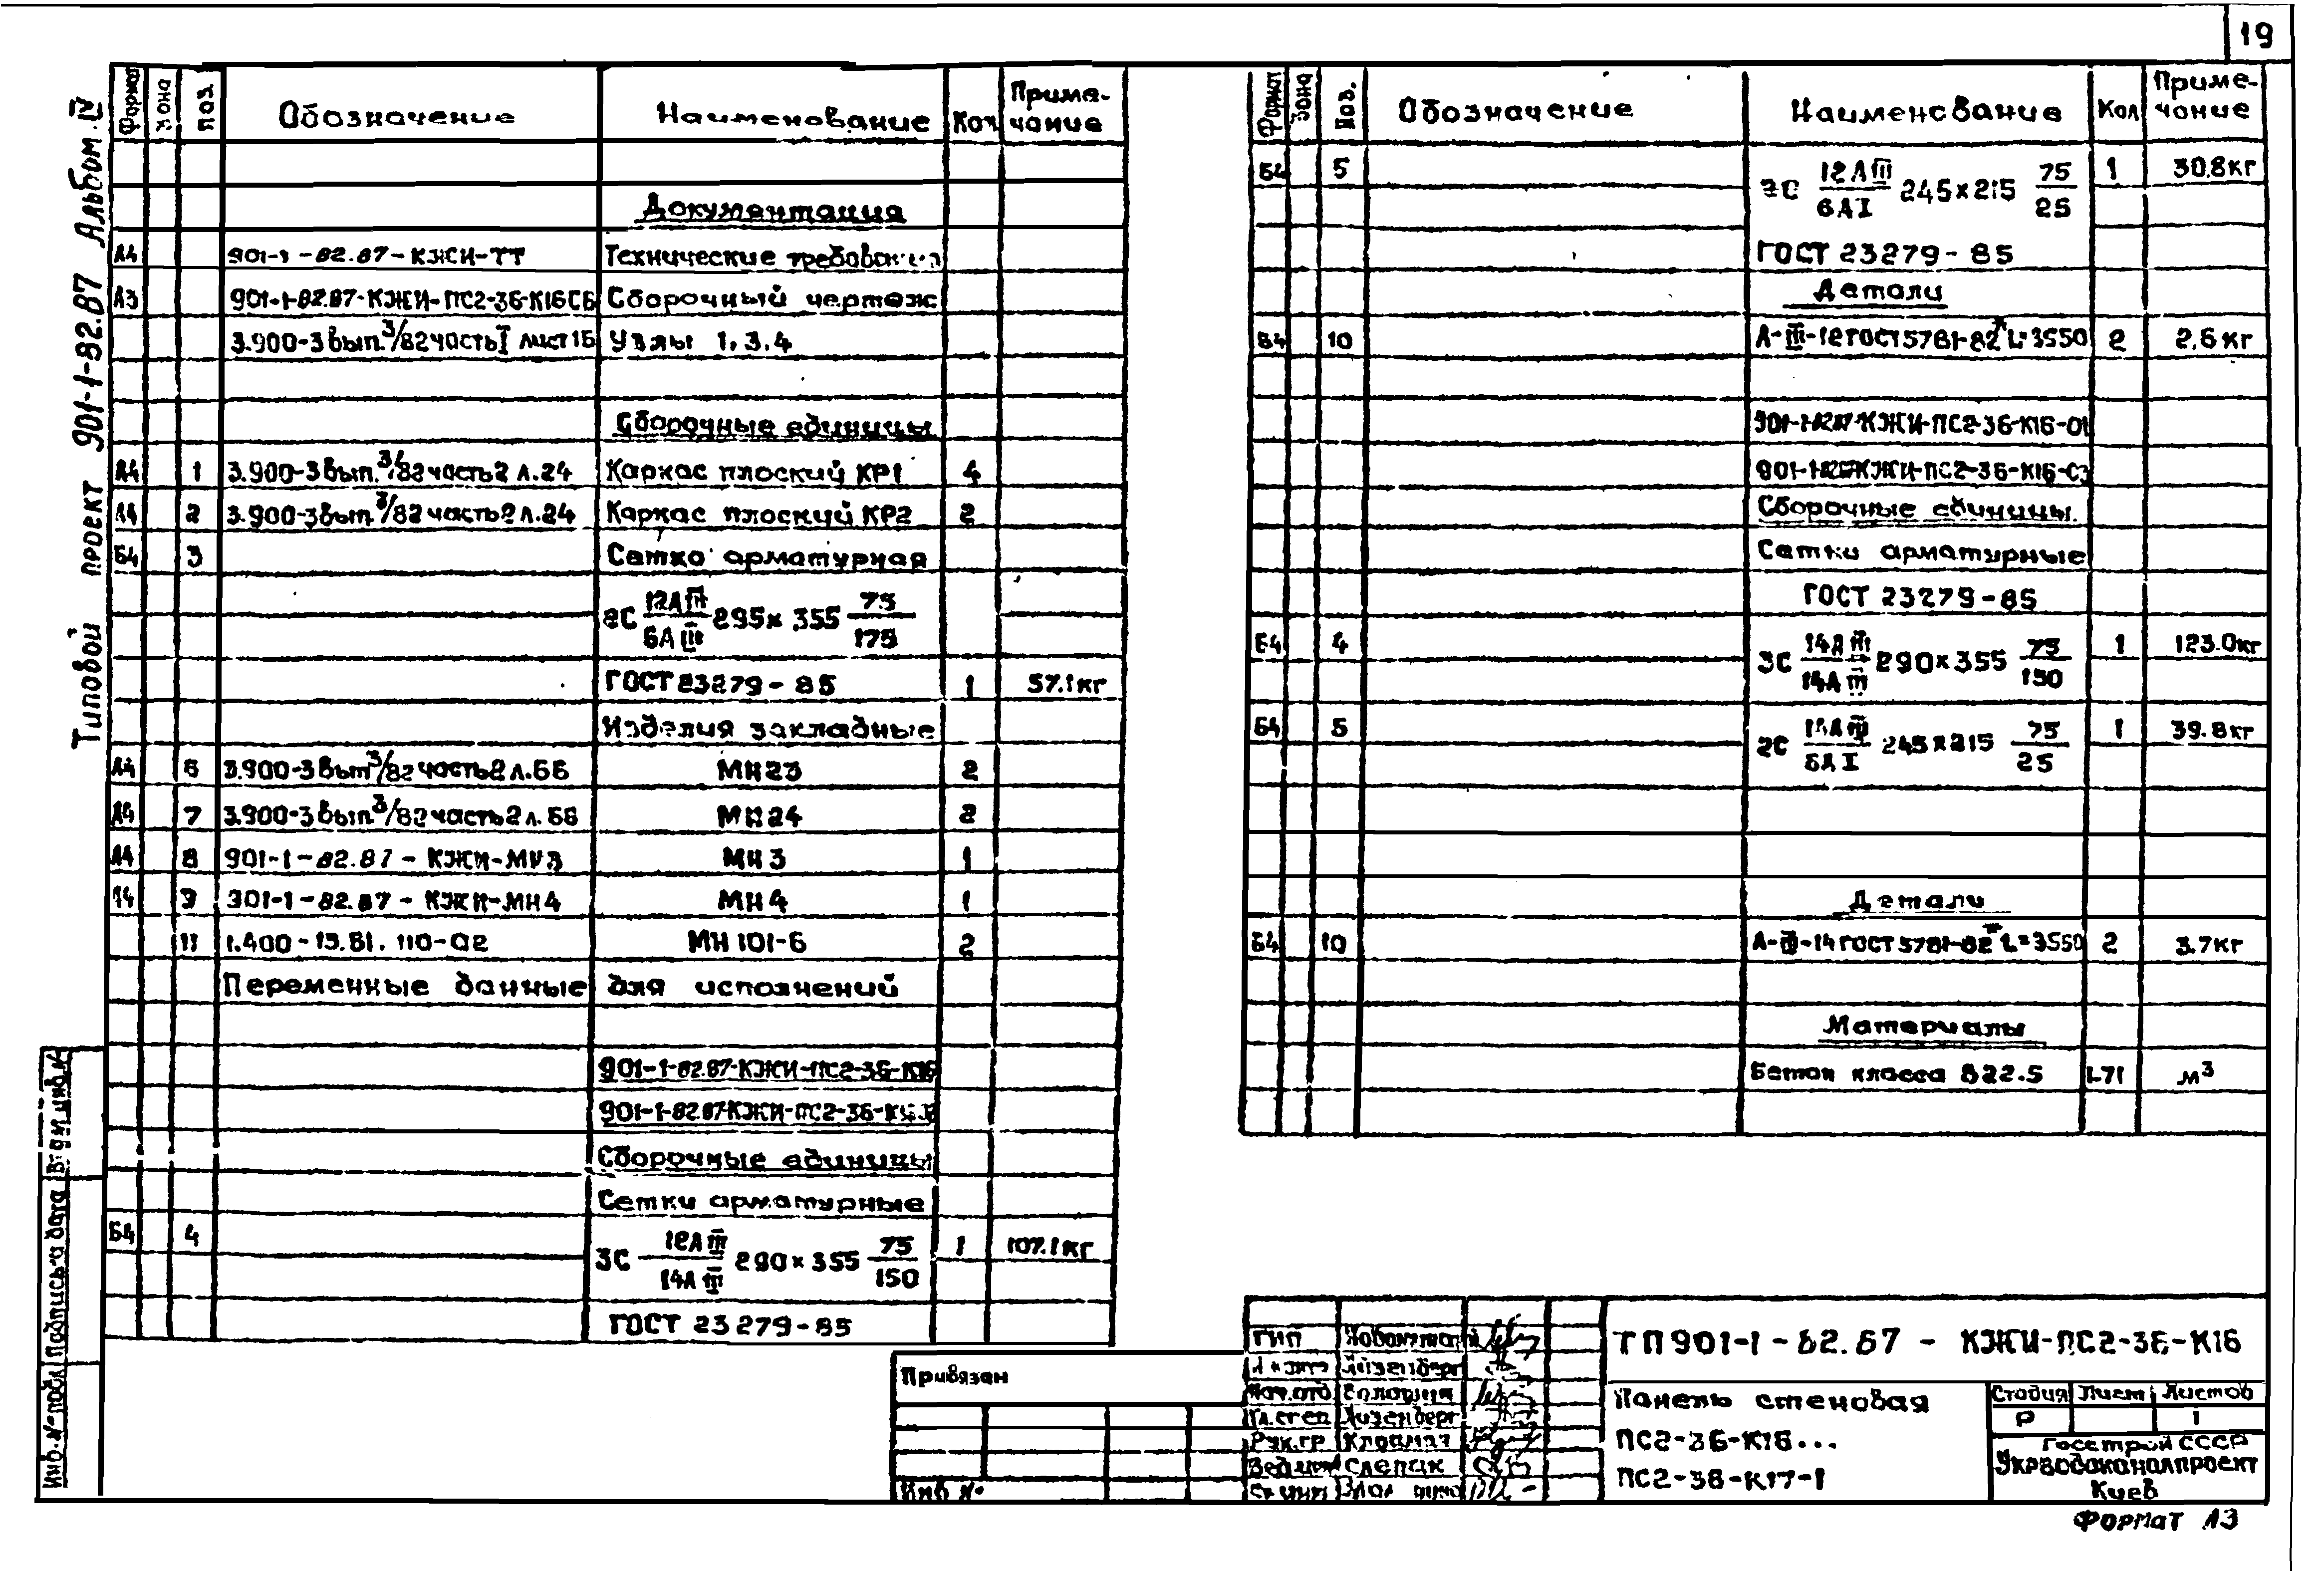 19
Типовой проект 901-1-82.87 Альбом IV
Формат Зона Поз. Обозначение Наименование Кол Приме-
чание
Документация
А4 901-1-82.87-КЖИ-ТТ Технические требования
А3 901-1-82.87-КЖИ-ПС2-36-К16СБ Сборочный чертеж
3.900-3 вып.3/82 часть I лист 15 Узлы 1,3,4
Сборочные единицы
А4 1 3.900-3 вып.3/82 часть 2 л.24 Каркас плоский КР1 4
А4 2 3.900-3 вып.3/82 часть 2 л.24 Каркас плоский КР2 2
Б4 3 Сетка арматурная
2С 12АIII/6АIII 295×355 75/175
ГОСТ 23279-85 1 57.1кг
Изделия закладные
А4 6 3.900-3 вып.3/82 часть 2 л.66 МН23 2
А4 7 3.900-3 вып.3/82 часть 2 л.66 МН24 2
А4 8 901-1-82.87-КЖИ-МН3 МН3 1
А4 9 901-1-82.87-КЖИ-МН4 МН4 1
11 1.400-15.В1.110-02 МН101-6 2
Переменные данные для исполнений
901-1-82.87-КЖИ-ПС2-36-К16
901-1-82.87-КЖИ-ПС2-36-К16
Сборочные единицы
Сетки арматурные
Б4 4 3С 12АIII/14АIII 290×355 75/150 1 107.1кг
ГОСТ 23279-85
Формат Зона Поз. Обозначение Наименование Кол Приме-
чание
Б4 5 2С 12АIII/6АI 245×215 75/25 1 30.8кг
ГОСТ 23279-85
Детали
Б4 10 А-III-12 ГОСТ 5781-82* L=3550 2 2.6кг
901-1-82.87-КЖИ-ПС2-36-К16-01
901-1-82.87-КЖИ-ПС2-36-К16-03
Сборочные единицы
Сетки арматурные
ГОСТ 23279-85
Б4 4 3С 14АIII/14АIII 290×355 75/150 1 123.0кг
Б4 5 2С 14АIII/6АI 245×215 75/25 1 39.8кг
Детали
Б4 10 А-III-14 ГОСТ 5781-82* L=3550 2 3.7кг
Материалы
Бетон класса В22.5 1.71 м³
Инв.№ подл Подпись и дата Взам инв.№
Привязан
Инв №
ГИП
Айзенберг
Нач.отд
Гл.спец Айзенберг
Рук.гр
Вед.инж Слепак
ТП 901-1-82.87 - КЖИ-ПС2-36-К16
Панель стеновая
ПС2-36-К16...
ПС2-36-К17-1
Стадия Лист Листов
Р 1
Госстрой СССР
Укрводоканалпроект
Киев
Формат А3